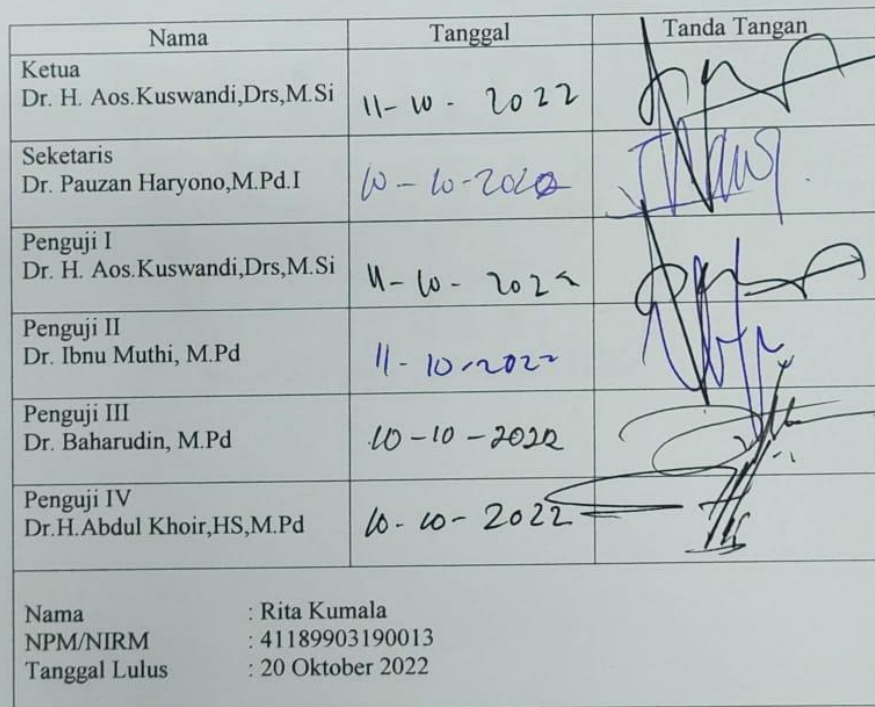 Nama Tanggal Tanda Tangan
Ketua
Dr. H. Aos.Kuswandi,Drs,M.Si 11-10-2022
Seketaris
Dr. Pauzan Haryono,M.Pd.I 10-10-2022
Penguji I
Dr. H. Aos.Kuswandi,Drs,M.Si 11-10-2022
Penguji II
Dr. Ibnu Muthi, M.Pd 11-10-2022
Penguji III
Dr. Baharudin, M.Pd 10-10-2022
Penguji IV
Dr.H.Abdul Khoir,HS,M.Pd 10-10-2022
Nama : Rita Kumala
NPM/NIRM : 41189903190013
Tanggal Lulus : 20 Oktober 2022